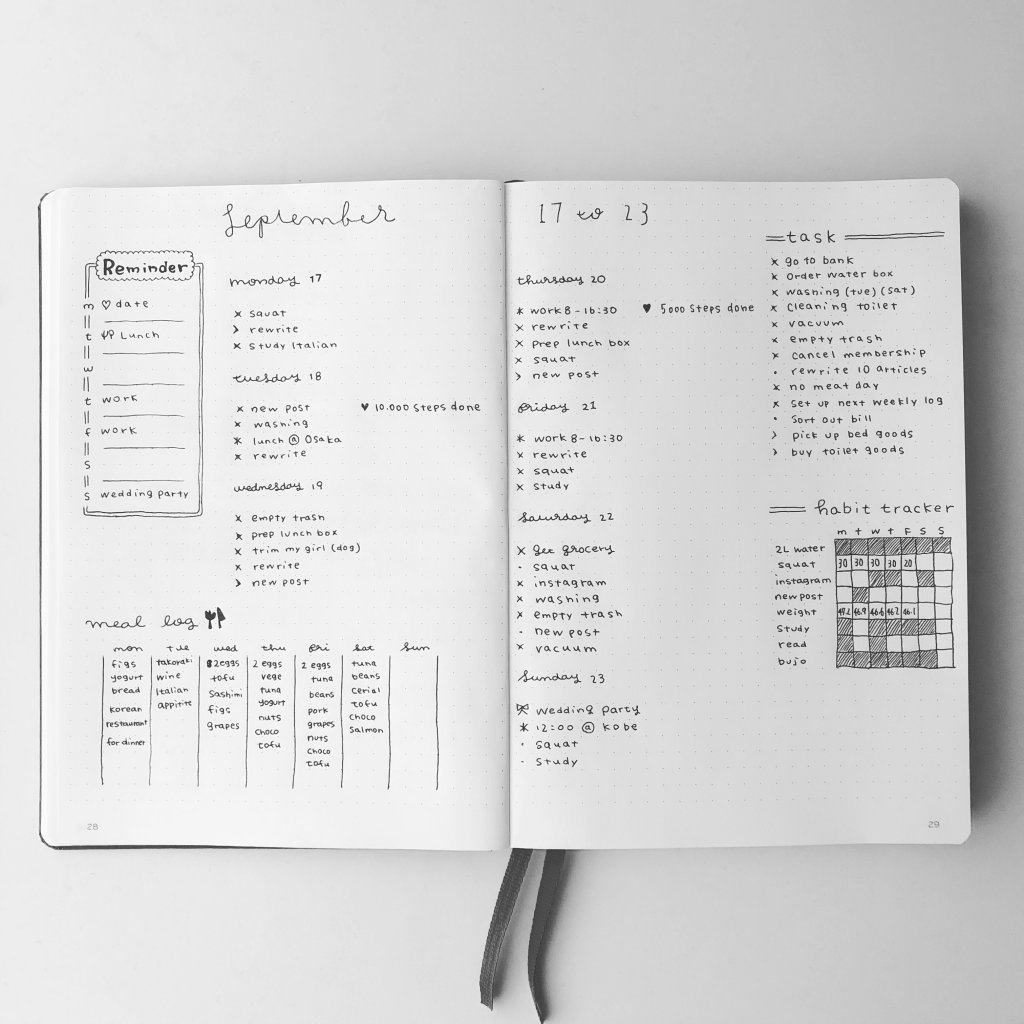 September
Reminder
m ♡ date
t Lunch
w
t work
f work
s
s wedding party
monday 17
× squat
> rewrite
× study Italian
tuesday 18
× new post ♥ 10.000 steps done
× washing
* lunch @ Osaka
× rewrite
wednesday 19
× empty trash
× prep lunch box
× trim my girl (dog)
× rewrite
> new post
meal log
mon tue wed thu fri sat sun
figs
yogurt
bread
korean
restaurant
for dinner
takoyaki
wine
Italian
appitite
2 eggs
tofu
Sashimi
figs
grapes
2 eggs
vege
tuna
yogurt
nuts
choco
tofu
2 eggs
tuna
beans
pork
grapes
nuts
choco
tofu
tuna
beans
cerial
tofu
choco
salmon
28
17 to 23
thursday 20
* work 8-16:30 ♥ 5000 steps done
× rewrite
× prep lunch box
× squat
> new post
friday 21
* work 8-16:30
× rewrite
× squat
× study
saturday 22
× get grocery
· squat
× instagram
× washing
× empty trash
· new post
× vacuum
sunday 23
wedding party
* 12:00 @ kobe
· squat
· study
task
× go to bank
× order water box
× washing (tue) (sat)
× cleaning toilet
× vacuum
× empty trash
× cancel membership
· rewrite 10 articles
× no meat day
× set up next weekly log
· sort out bill
> pick up bed goods
> buy toilet goods
habit tracker
m t w t F S S
2L water
squat 30 30 30 30 20
instagram
new post
weight 46.9 46.6 46.2 46.1
study
read
bujo
29